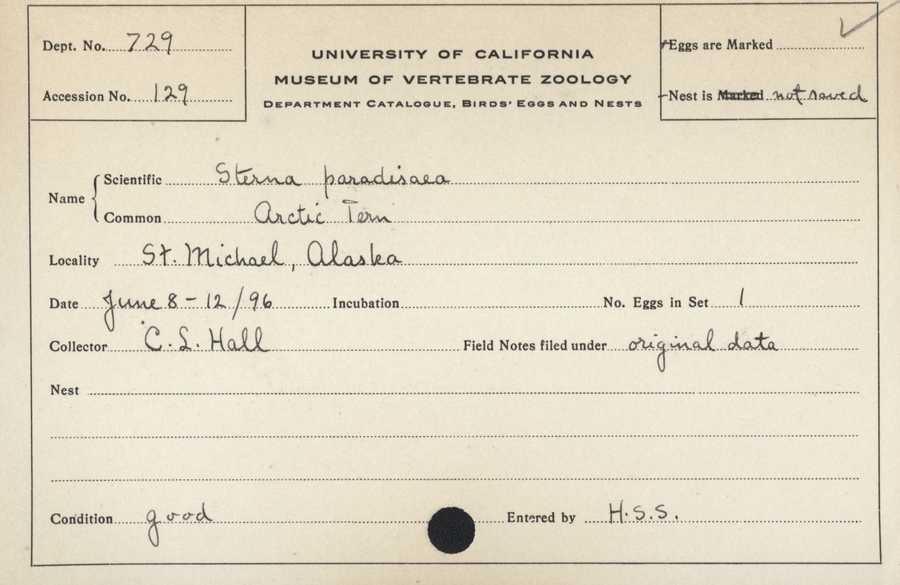 Dept. No. 729
Accession No. 129
UNIVERSITY OF CALIFORNIA
MUSEUM OF VERTEBRATE ZOOLOGY
DEPARTMENT CATALOGUE, BIRDS' EGGS AND NESTS
Eggs are Marked
Nest is Marked not saved
Name
Scientific Sterna paradisaea
Common Arctic Tern
Locality St. Michael, Alaska
Date June 8 - 12/96 Incubation No. Eggs in Set 1
Collector C. L. Hall Field Notes filed under original data
Nest
Condition good Entered by H.S.S.